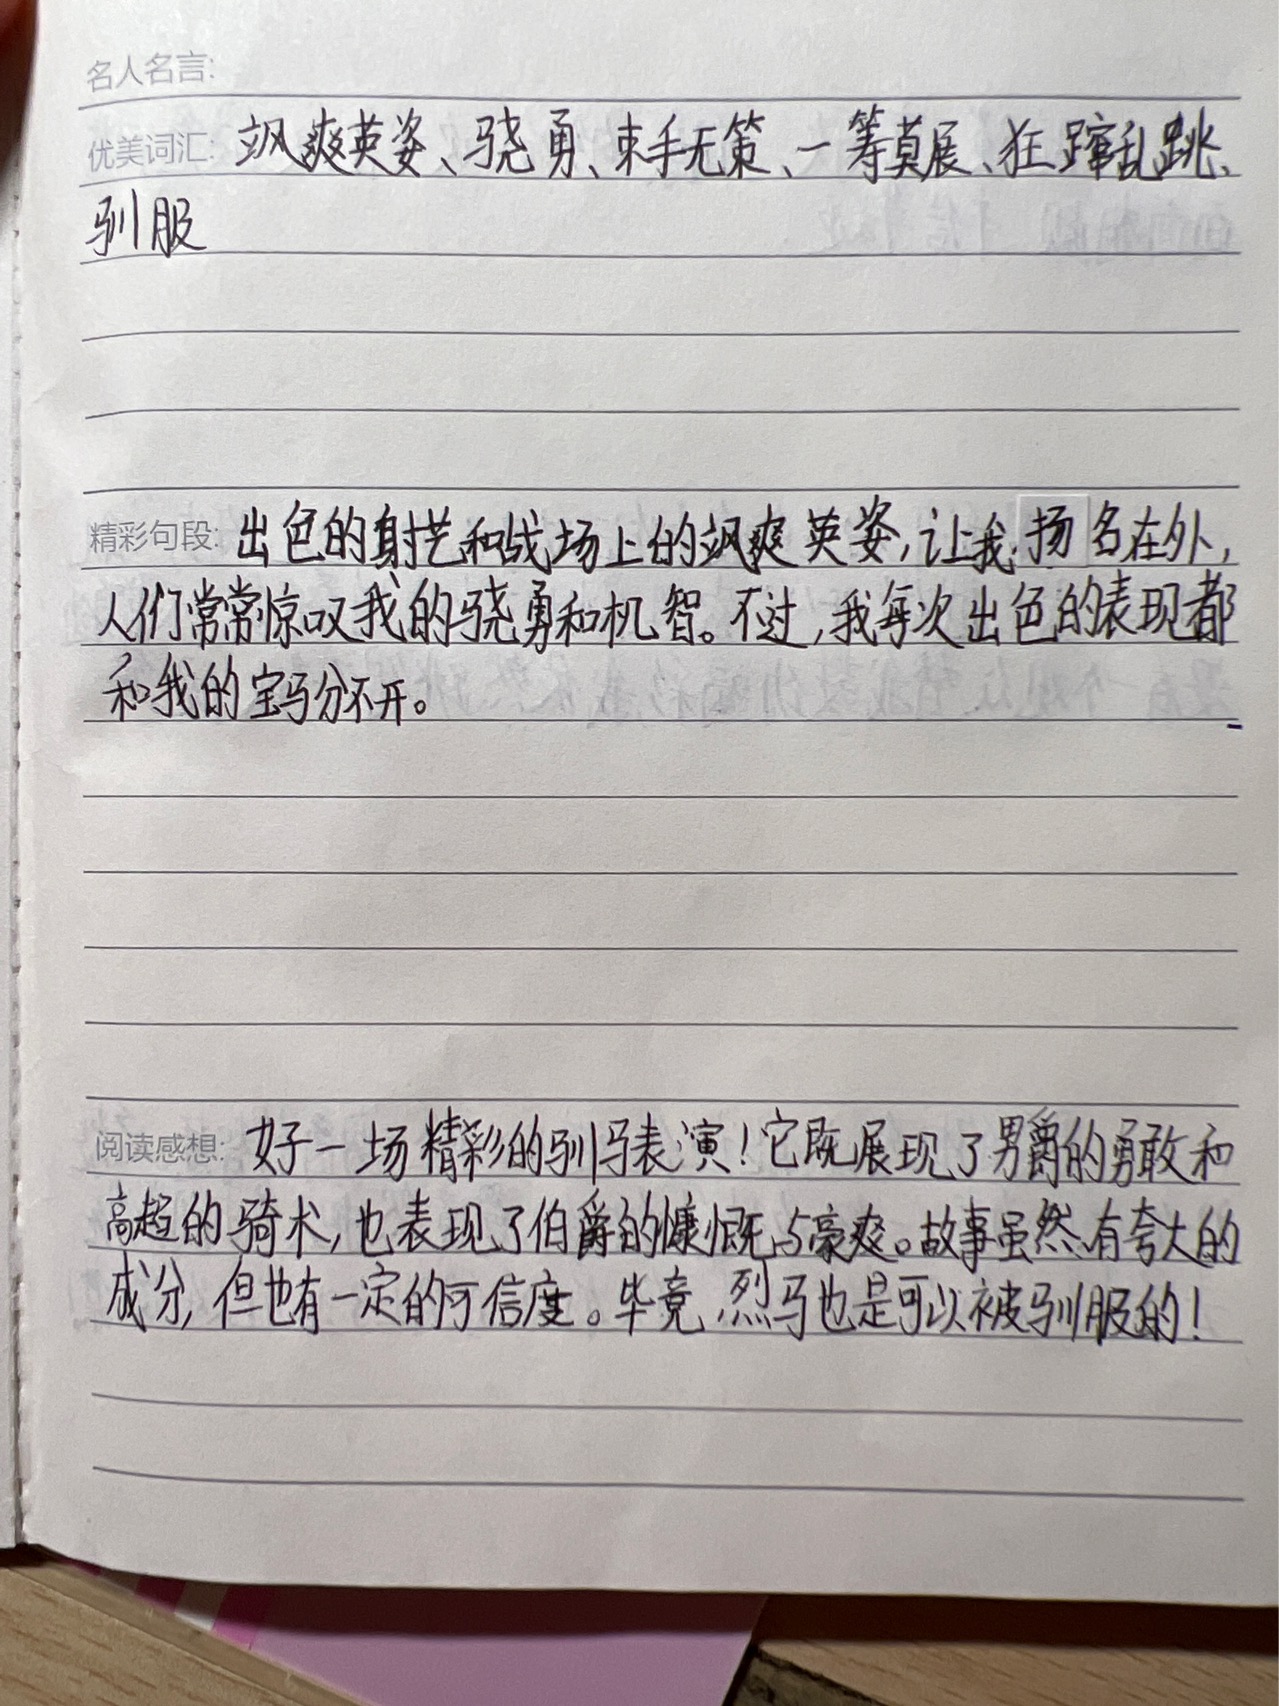 名人名言:
优美词汇: 飒爽英姿、骁勇、束手无策、一筹莫展、狂蹿乱跳、
驯服
精彩句段: 出色的射艺和战场上的飒爽英姿,让我扬名在外,
人们常常惊叹我的骁勇和机智。不过,我每次出色的表现都
和我的宝马分不开。
阅读感想: 好一场精彩的驯马表演!它既展现了男爵的勇敢和
高超的骑术,也表现了伯爵的慷慨与豪爽。故事虽然有夸大的
成分,但也有一定的可信度。毕竟,烈马也是可以被驯服的!